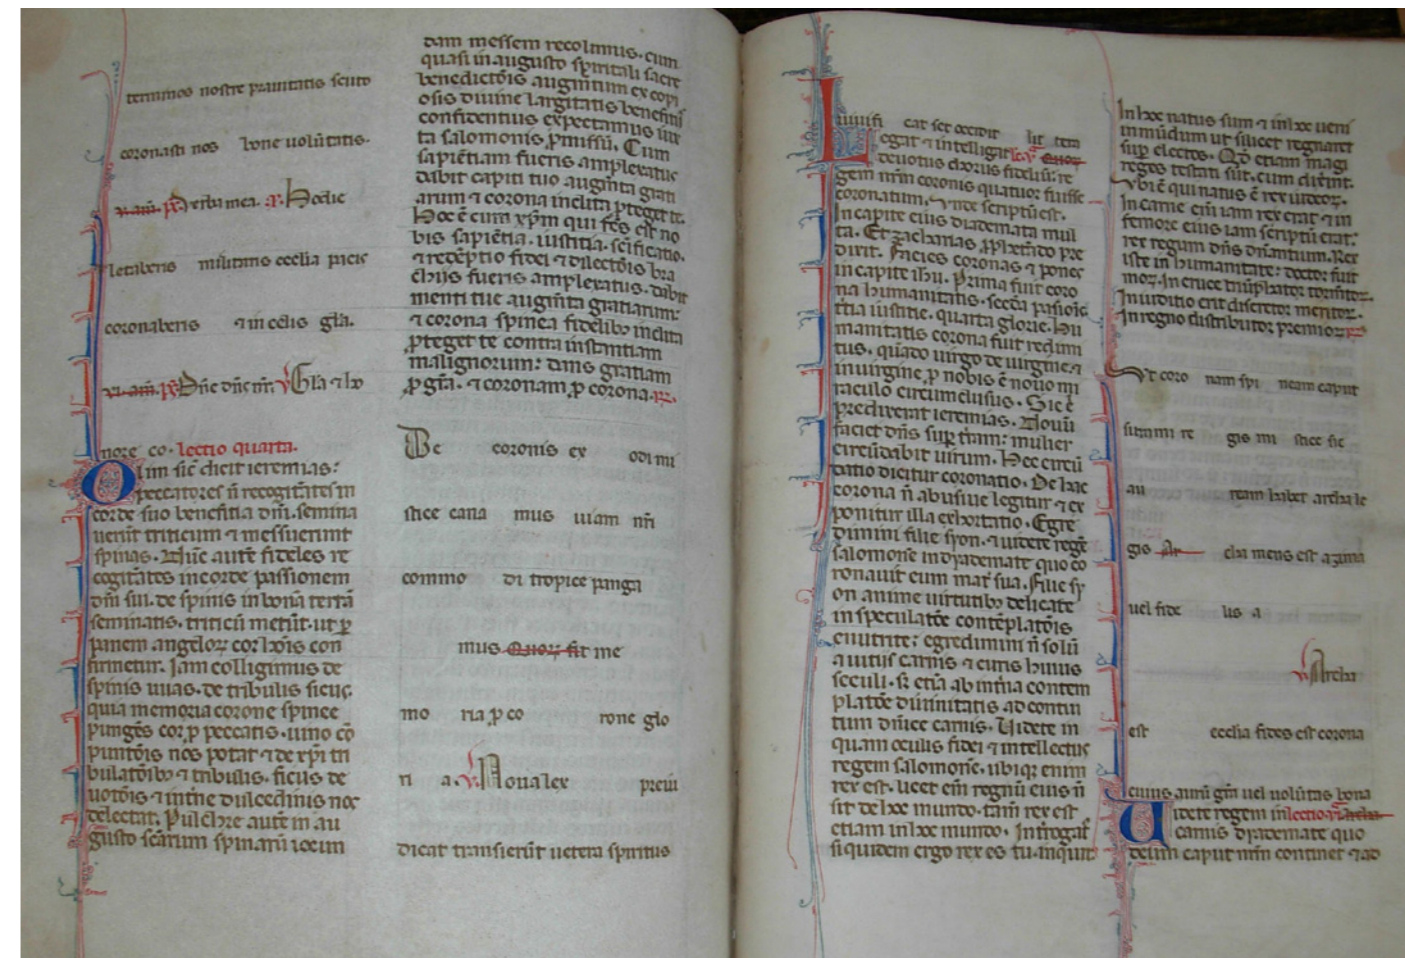 terminos nostre prauitatis scuto
coronasti nos bone uolūtatis.
v. añ. ps. Verba mea. R. Hodie
letaberis militans ecclia pacis
coronaberis ⁊ in celis gła.
Dñe dñs nr̄. v Gła ⁊ ho
nore co. lectio quarta.
Olim sic̄ dicit ieremias:
peccatores ñ recogitātes in
corde suo beneficia dñi. semina
uerūt triticum ⁊ messuerunt
spinas. Nūc autē fideles re
cogitātes in corde passionem
dñi sui. de spinis in bonā terrā
seminatis. triticū metūt. ut ꝑ
panem angeloꝝ cor hoīs con
firmetur. Iam colligimus de
spinis uuas. de tribulis ficus.
quia memoria corone spinee
pungēs cor ꝓ peccatis. uino cō
punctōis nos potat ⁊ de xp̄i tri
bulatōibꝫ ⁊ tribulis. ficus de
uotōis ⁊ int̄ne dulcedinis nos
delectat. Pulchre autē in au
gusto sc̄arum spinarū
dam messem recolimus. cum
quasi in augusto spiritali sacre
benedictōis augm̄tum ex copi
osis diuine largitatis beneficiis
confidentius expectamus iux
ta salomonis ꝓmissū. Cum
sapiētiam fueris amplexatus
dabit capiti tuo augm̄ta grati
arum ⁊ corona inclita ꝓteget te.
Hoc ē cum xp̄m qui fc̄s est no
bis sapiētia. iustitia. sc̄ificatio.
⁊ redēptio fidei ⁊ dilectōis bra
chijs fueris amplexatus. dabit
menti tue augm̄ta gratiarum:
⁊ corona spinea fidelibꝫ inclita
ꝓteget te contra instantiam
malignorum: dans gratiam
ꝓ gr̄a. ⁊ coronam ꝓ corona. R.
De coronis ex odi mi
stice cana mus uiam nr̄i
commo di tropice panga
mus Quoꝝ fit me
mo ria ꝓ co rone glo
ri a. v Noua lex preui
dicat transierūt uetera spiritus
uiuifi cat set occidit lit tera
Legat ⁊ intelligat Quoꝝ
deuotus chorus fidelium: re
gem nr̄m coronis quatuor fuisse
coronatum, unde scriptū est.
In capite eius diademata mul
ta. Et zacharias ꝓphetādo pre
dixit. Facies coronas ⁊ pones
in capite ihu. Prima fuit coro
na humanitatis. secūda passiōis
t̄tia iusticie. quarta glorie. Hu
manitatis corona fuit redimi
tus. quādo uirgo de uirgine ⁊
in uirgine ꝓ nobis ē nouo mi
raculo circumclusus. Sic ē
predixerat ieremias. Nouū
faciet dñs suꝑ t̄ram: mulier
circūdabit uirum. Hec circū
datio dicitur coronatio. De hac
corona ñ abusiue legitur ⁊ ex
ponitur illa exhortatio. Egre
dimini filie syon. ⁊ uidete regē
salomonē in dyademate quo co
ronauit eum mat̄ sua. Filie sy
on anime uirtutibꝫ delicate
in speculatōe contēplatōis
enutrite: egredimini ñ solū
a uitijs carnis ⁊ curis huius
seculi. sꝫ etiā ab int̄na contem
platōe diuinitatis ad contui
tum dñice carnis. Uidete in
quam oculis fidei ⁊ intellectus
regem salomonē. ubiqꝫ enim
rex est. licet em̄ regnū eius ñ
sit de hoc mundo. tam̄ rex est
etiam in hoc mundo. Int̄rogat
si quidem ergo rex es tu. inquit
In hoc natus sum ⁊ in hoc ueni
in mūdum ut silicet regnaret
suꝑ electos. Qd̄ etiam magi
reges testati sūt. cum dicerēt.
Vbi ē qui natus ē rex iudeoꝝ.
In carne em̄ iam rex erat ⁊ in
femore eius iam scriptū erat:
rex regum dñs dñantium. Rex
iste in humanitate: doctor fuit
moꝝ. In cruce triūphator tormētoꝝ.
In iuditio erit discretor meritoꝝ.
In regno distributor premioꝝ. R.
Vt coro nam spi neam caput
summi re gis mi stice sic
au ream habet archa le
gis Ar cha mens est azima
uel fide lis a
v Archa
est ecclia fides est corona
cuius aurū gm̄ uel uolūtas bona
Uidete regem in lectio archa
carnis dyademate quo
deum caput nr̄m continet ⁊ ad